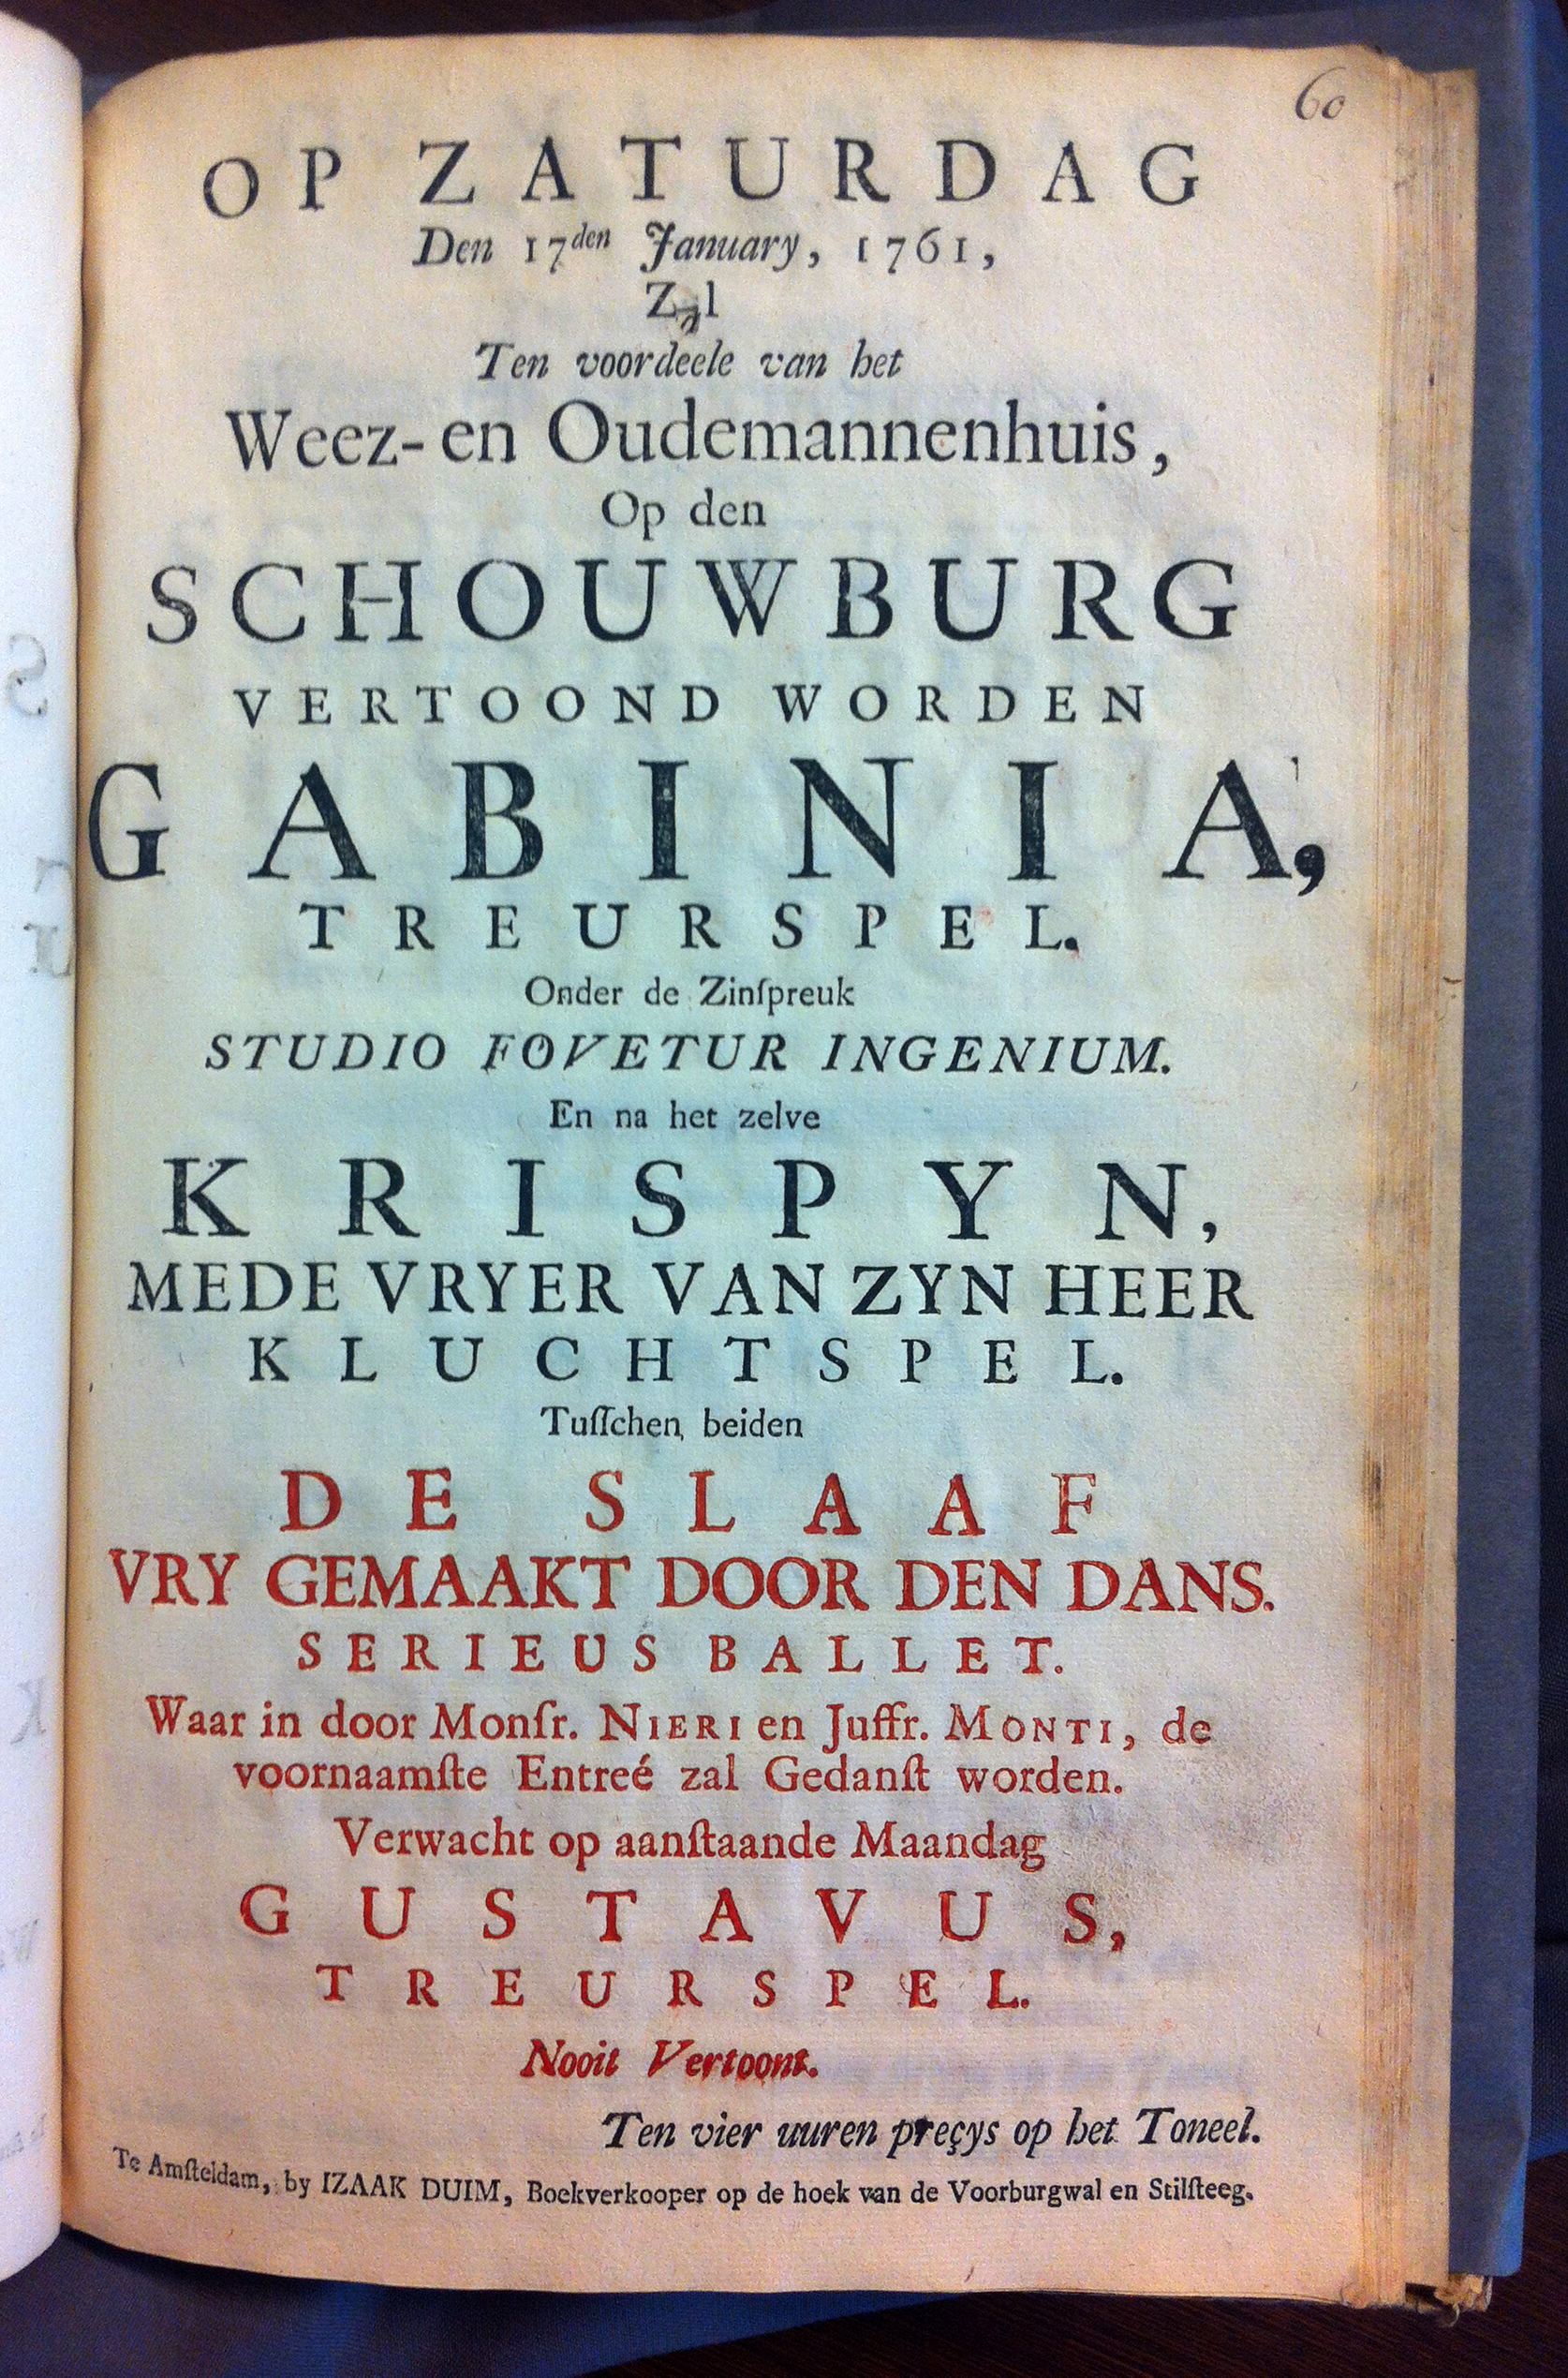 60
OP ZATURDAG
Den 17den January, 1761,
Zal
Ten voordeele van het
Weez- en Oudemannenhuis,
Op den
SCHOUWBURG
VERTOOND WORDEN
GABINIA,
TREURSPEL.
Onder de Zinſpreuk
STUDIO FOVETUR INGENIUM.
En na het zelve
KRISPYN,
MEDE VRYER VAN ZYN HEER
KLUCHTSPEL.
Tuſſchen beiden
DE SLAAF
VRY GEMAAKT DOOR DEN DANS.
SERIEUS BALLET.
Waar in door Monſr. NIERI en Juffr. MONTI, de
voornaamſte Entreé zal Gedanſt worden.
Verwacht op aanſtaande Maandag
GUSTAVUS,
TREURSPEL.
Nooit Vertoont.
Ten vier uuren preçys op het Toneel.
Te Amſteldam, by IZAAK DUIM, Boekverkooper op de hoek van de Voorburgwal en Stilſteeg.